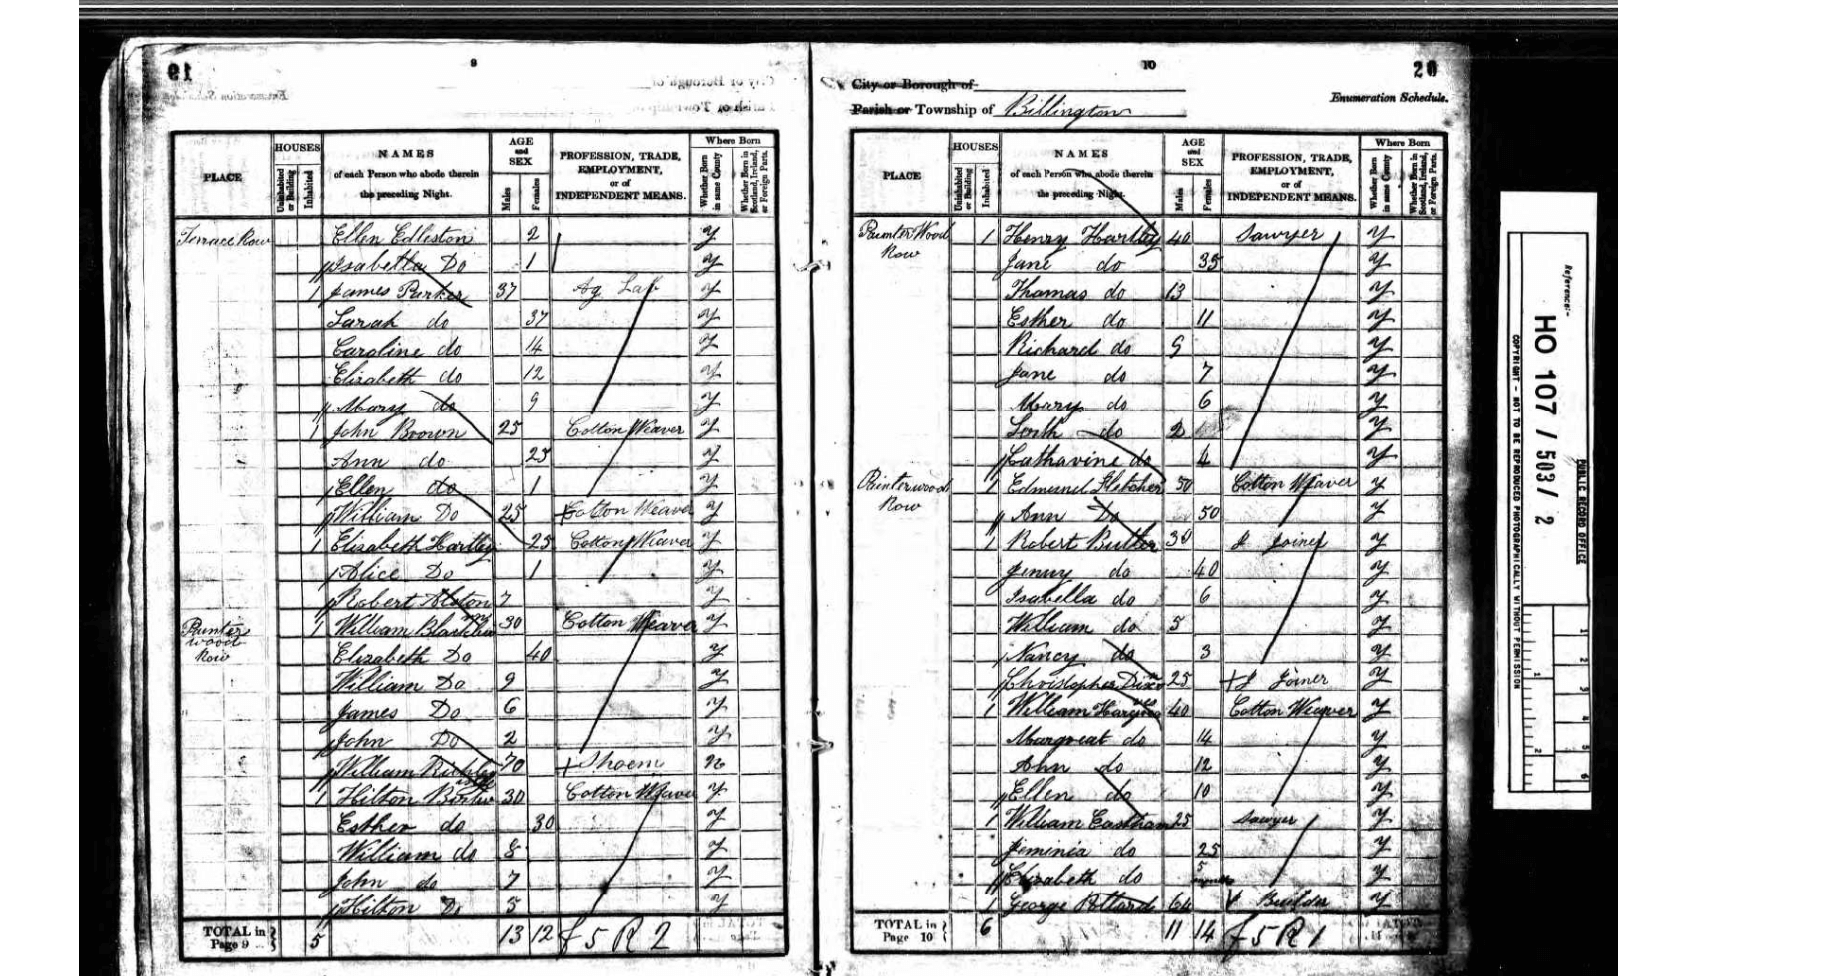 19
9
City or Borough of
Parish or Township of
Enumeration Schedule.
PLACE
HOUSES
Uninhabited or Building
Inhabited
NAMES
of each Person who abode therein
the preceding Night.
AGE
and
SEX
Males
Females
PROFESSION, TRADE,
EMPLOYMENT,
or of
INDEPENDENT MEANS.
Where Born
Whether Born in same County
Whether Born in Scotland, Ireland, or Foreign Parts.
Terrace Row Ellen Edleston 2 y
Isabella Do 1 y
1 James Parker 37 Ag Lab y
Sarah do 37 y
Caroline do 14 y
Elizabeth do 12 y
Mary do 9 y
1 John Brown 25 Cotton Weaver y
Ann do 25 y
Ellen do 1 y
William Do 25 Cotton Weaver y
1 Elizabeth Hartley 25 Cotton Weaver y
Alice Do 1 y
Robert Alston 7 y
Painter wood Row 1 William 30 Cotton Weaver y
Elizabeth Do 40 y
William Do 9 y
James Do 6 y
John Do 2 y
William 70 Shoem n
1 Hilton 30 Cotton Weaver y
Esther do 30 y
William do 8 y
John do 7 y
Hilton Do 5 y
TOTAL in Page 9 5 13 12 f 5 R 2
10
20
City or Borough of
Parish or Township of Billington
Enumeration Schedule.
PLACE
HOUSES
Uninhabited or Building
Inhabited
NAMES
of each Person who abode therein
the preceding Night.
AGE
and
SEX
Males
Females
PROFESSION, TRADE,
EMPLOYMENT,
or of
INDEPENDENT MEANS.
Where Born
Whether Born in same County
Whether Born in Scotland, Ireland, or Foreign Parts.
Painter Wood Row 1 Henry Hartley 40 Sawyer y
Jane do 35 y
Thomas do 13 y
Esther do 11 y
Richard do 9 y
Jane do 7 y
Mary do 6 y
do 2 y
Catharine do 4 y
Painterwood Row 1 Edmund Fletcher 50 Cotton Weaver y
Ann Do 50 y
1 Robert Butler 30 J Joiner y
Jenny do 40 y
Isabella do 6 y
William do 5 y
Nancy do 3 y
Christopher 25 J Joiner y
1 William 40 Cotton Weaver y
Margreat do 14 y
Ann do 12 y
Ellen do 10 y
1 William Eastham 25 Sawyer y
Jeminia do 25 y
Elizabeth do 5 months y
1 George Pollard 64 Builder y
TOTAL in Page 10 6 11 14 f 5 R 1
Reference:-
HO 107 / 503 / 2
PUBLIC RECORD OFFICE
COPYRIGHT - NOT TO BE REPRODUCED PHOTOGRAPHICALLY WITHOUT PERMISSION
1
2
3
4
5
6
1
2